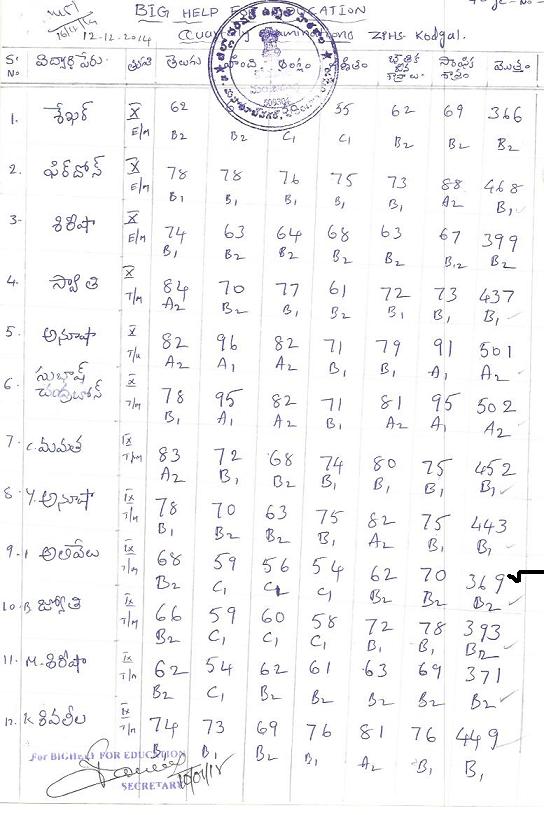 BIG HELP FOR EDUCATION
12-12-2014 Quarterly Examinations ZPHS Kodgal.
S.No విద్యార్థి పేరు తరగతి తెలుగు హింది ఇంగ్లీషు గణితం భౌతిక శాస్త్రం సాంఘిక శాస్త్రం మొత్తం
1. శేఖర్ X 62 55 62 69 366
E/M B2 B2 C1 C1 B2 B2 B2
2. ఫిర్దోస్ X 78 78 76 75 73 88 468
E/M B1 B1 B1 B1 B1 A2 B1
3- శిరీషా X 74 63 64 68 63 67 399
E/M B1 B2 B2 B2 B2 B2 B2
4. స్వాతి X 84 70 77 61 72 73 437
T/M A2 B2 B1 B2 B1 B1 B1
5. అనూషా X 82 96 82 71 79 91 501
T/M A2 A1 A2 B1 B1 A1 A2
6. సుభాష్ చంద్రబోస్ X 78 95 82 71 81 95 502
T/M B1 A1 A2 B1 A2 A1 A2
7. C. మమత IX 83 72 68 74 80 75 452
T/M A2 B1 B2 B1 B1 B1 B1
8. Y. అనూషా IX 78 70 63 75 82 75 443
T/M B1 B2 B2 B1 A2 B1 B1
9. అలివేలు IX 68 59 56 54 62 70 369
T/M B2 C1 C1 C1 B2 B2 B2
10. B జ్యోతి IX 66 59 60 58 72 78 393
T/M B2 C1 C1 C1 B1 B1 B2
11. M. శిరీషా IX 62 54 62 61 63 69 371
T/M B2 C1 B2 B2 B2 B2 B2
12. K శివలీల IX 74 73 69 76 81 76 449
T/M B1 B1 B2 B1 A2 B1 B1
For BIG HELP FOR EDUCATION
SECRETARY